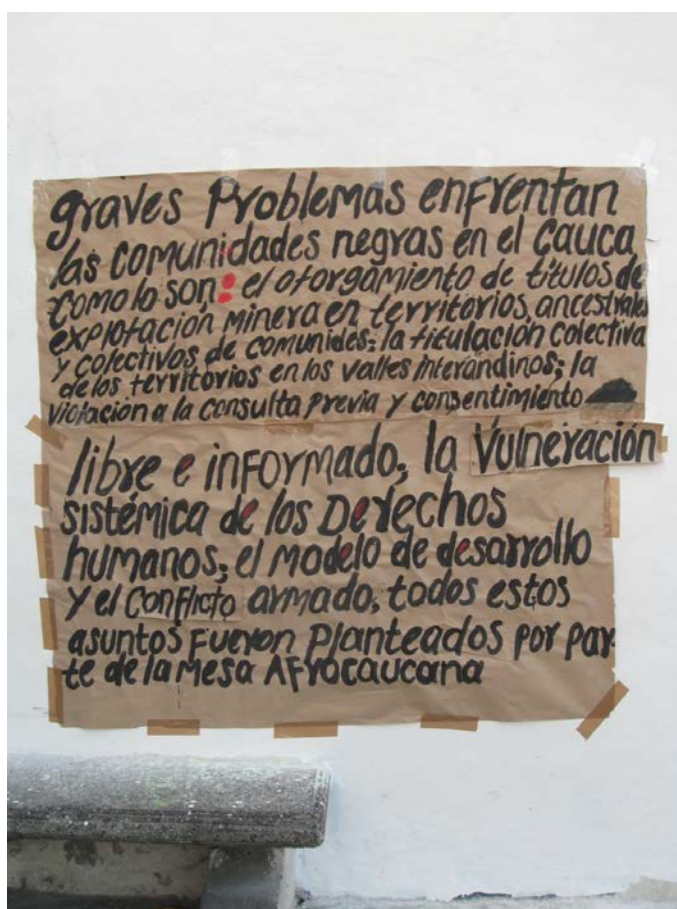 graves Problemas enfrentan
las comunidades negras en el Cauca
como lo son: el otorgamiento de títulos de
explotación minera en territorios ancestrales
y colectivos de comunides; la titulación colectiva
de los territorios en los valles interandinos; la
violacion a la consulta previa y consentimiento
libre e informado; la Vulneración
sistémica de los Derechos
humanos; el modelo de desarrollo
y el Conflicto armado, todos estos
asuntos Fueron Planteados por par-
te de la Mesa Afrocaucana